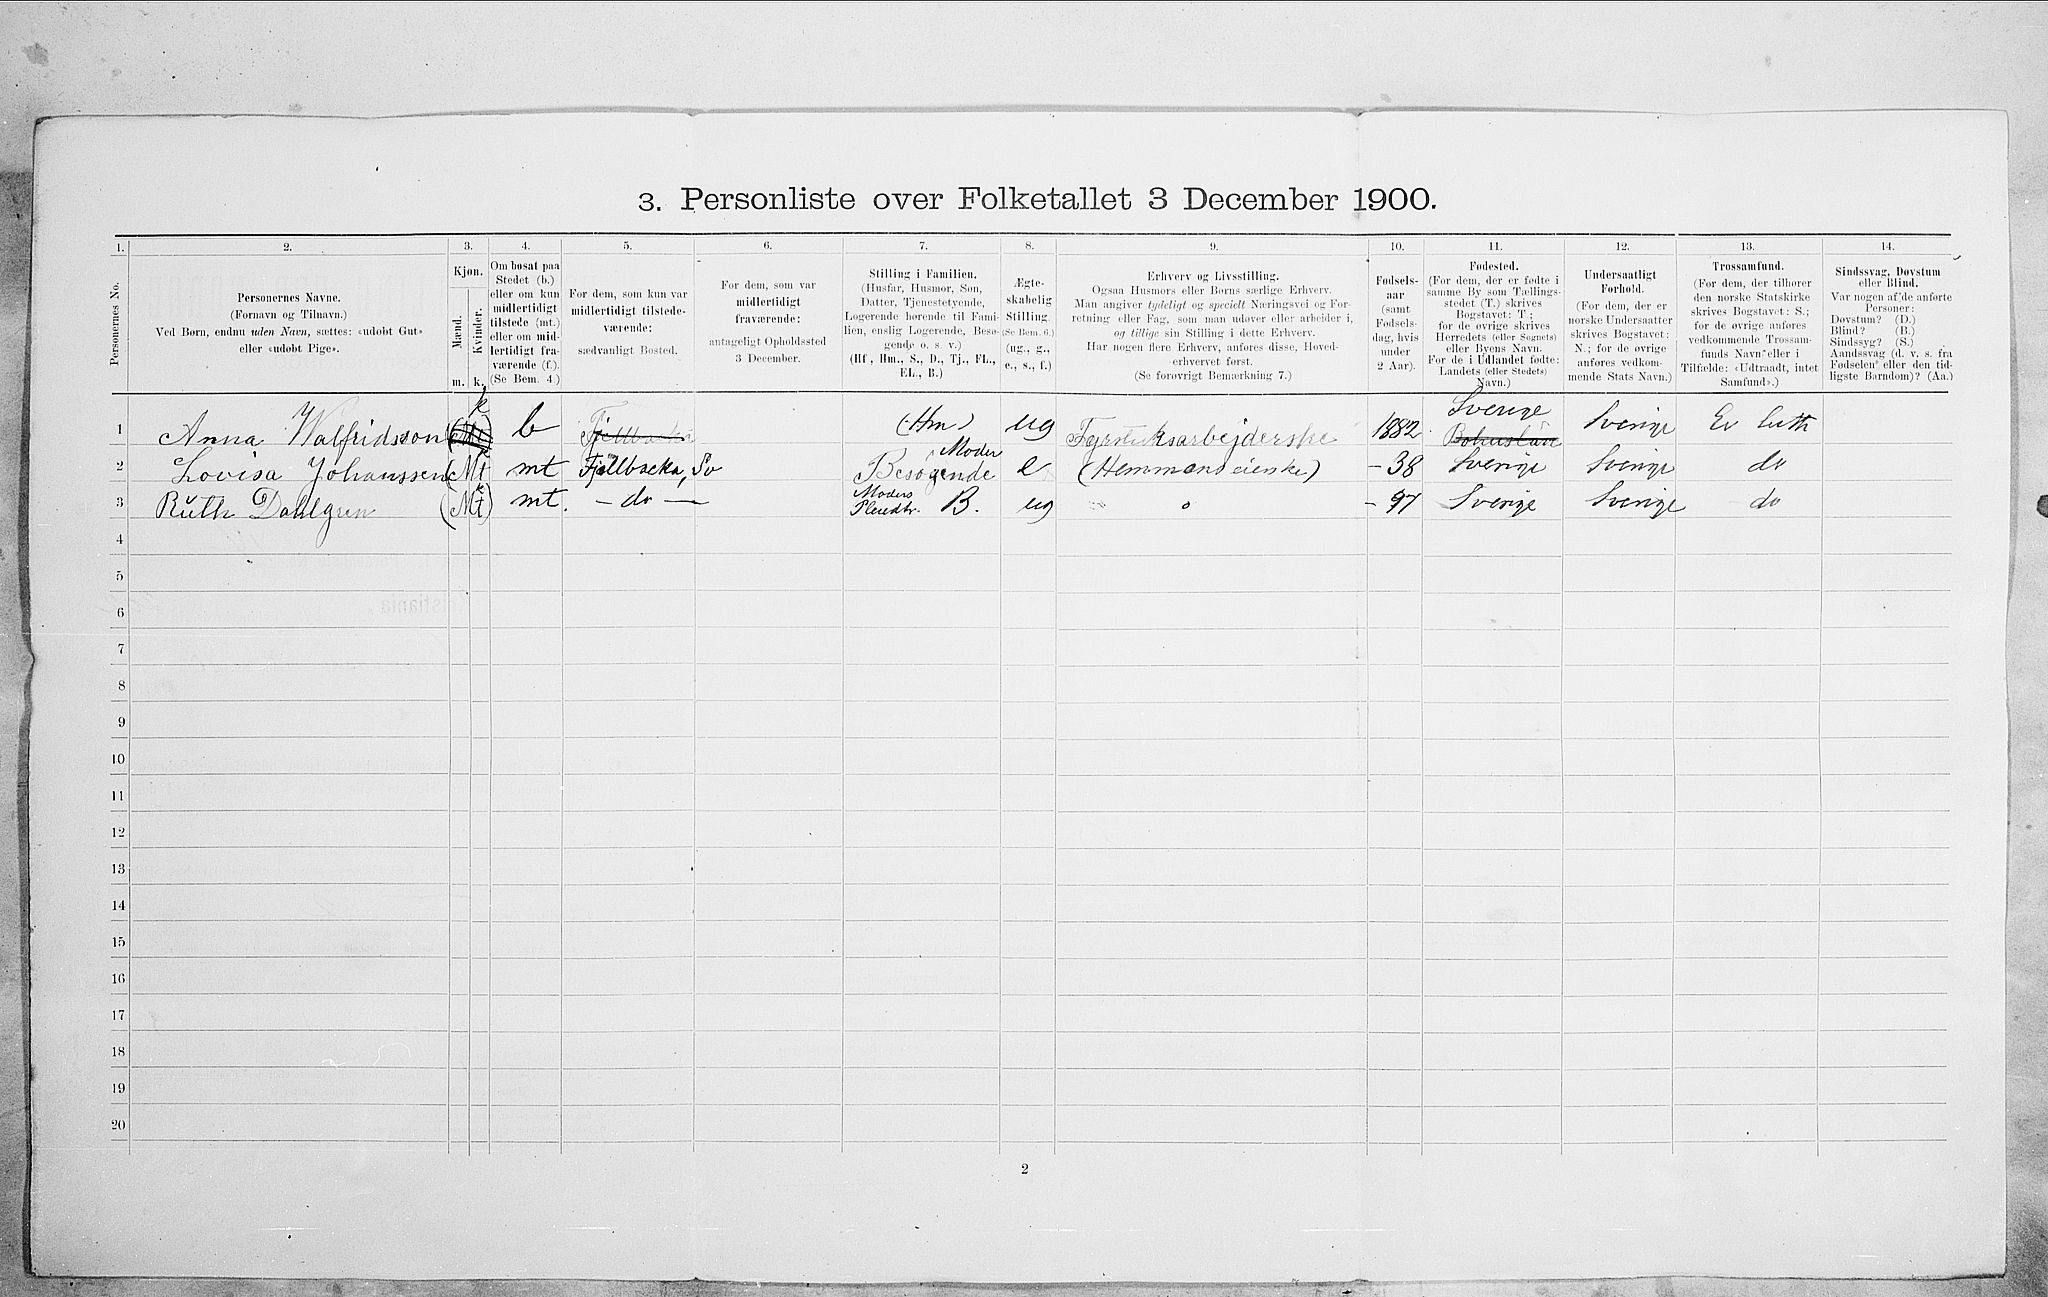 3. Personliste over Folketallet 3 December 1900.
1. 2. 3. 4. 5. 6. 7. 8. 9. 10. 11. 12. 13. 14.
Personernes No.
Personernes Navne.
(Fornavn og Tilnavn.)
Ved Børn, endnu uden Navn, sættes: «udøbt Gut»
eller «udøbt Pige».
Kjøn.
Mænd.
Kvinder.
m. k.
Om bosat paa
Stedet (b.)
eller om kun
midlertidigt
tilstede (mt.)
eller om mid-
lertidigt fra-
værende (f.).
(Se Bem. 4.)
For dem, som kun var
midlertidigt tilstede-
værende:
sædvanligt Bosted.
For dem, som var
midlertidigt
fraværende:
antageligt Opholdssted
3 December.
Stilling i Familien.
(Husfar, Husmor, Søn,
Datter, Tjenestetyende,
Logerende hørende til Fami-
lien, enslig Logerende, Besø-
gende o. s. v.)
(Hf., Hm., S., D., Tj., FL.,
EL., B.)
Ægte-
skabelig
Stilling.
(Se Bem. 6.)
(ug., g.,
e., s., f.)
Erhverv og Livsstilling.
Ogsaa Husmors eller Børns særlige Erhverv.
Man angiver tydeligt og specielt Næringsvei og For-
retning eller Fag, som man udøver eller arbeider i,
og tillige sin Stilling i dette Erhverv.
Har nogen flere Erhverv, anføres disse, Hoved-
erhvervet først.
(Se forøvrigt Bemærkning 7.)
Fødsels-
aar
(samt
Fødsels-
dag, hvis
under
2 Aar).
Fødested.
(For dem, der er fødte i
samme By som Tællings-
stedet (T.) skrives
Bogstavet: T.;
for de øvrige skrives
Herredets (eller Sognets)
eller Byens Navn.
For de i Udlandet fødte:
Landets (eller Stedets)
Navn.)
Undersaatligt
Forhold.
(For dem, der er
norske Undersaatter
skrives Bogstavet:
N.; for de øvrige
anføres vedkom-
mende Stats Navn.)
Trossamfund.
(For dem, der tilhører
den norske Statskirke
skrives Bogstavet: S.;
for de øvrige anføres
vedkommende Trossam-
funds Navn eller i
Tilfælde: «Udtraadt, intet
Samfund».)
Sindssvag, Døvstum
eller Blind.
Var nogen af de anførte
Personer:
Døvstum? (D.)
Blind? (B.)
Sindssyg? (S.)
Aandssvag (d. v. s. fra
Fødselen eller den tid-
ligste Barndom)? (Aa.)
1 Anna Walfridsson k b Fjellbacka (Hm) ug Fyrstiksarbejderske 1882. Sverige Bohuslän Sverige Ev luth
2 Lovisa Johanssen (Mt mt Fjellbacka, Sv Besøgende Moder e (Hemmandseierske) - 38 Sverige Sverige do
3 Ruth Dahlgren (Mt) k mt. - do - Moders Pleiedtr. B. ug - 97 Sverige Sverige do
4
5
6
7
8
9
10
11
12
13
14
15
16
17
18
19
20
2